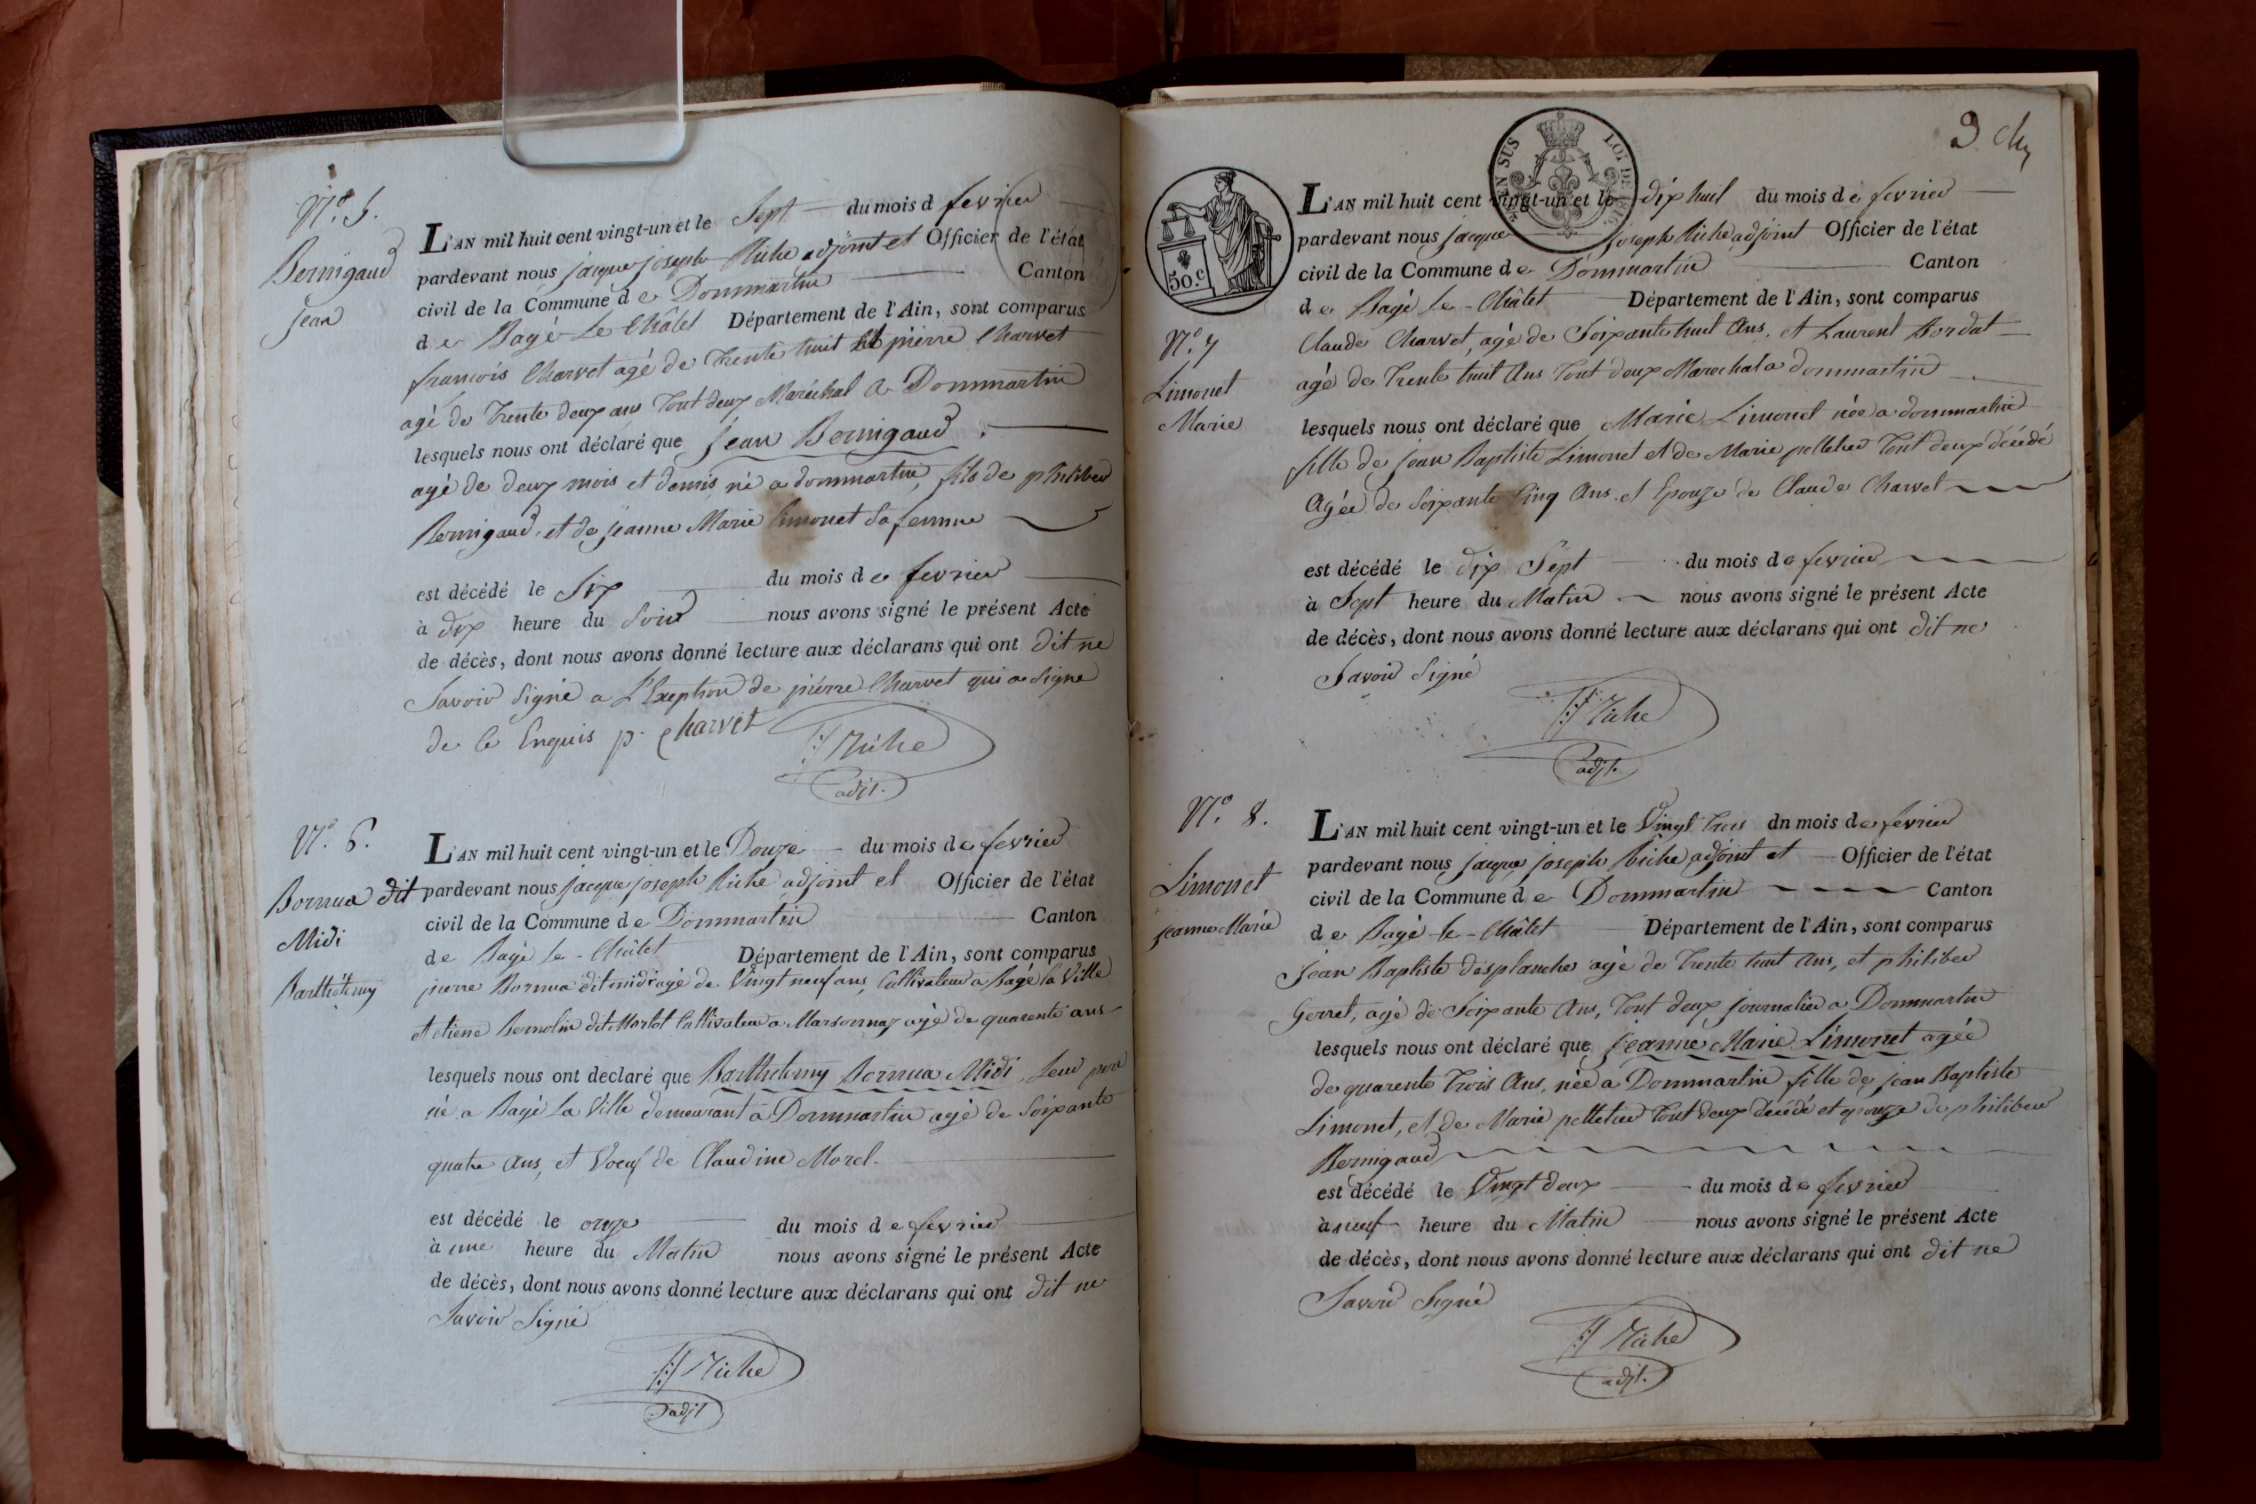 N.° 5.
Bernigaud
jean
L'AN mil huit cent vingt-un et le Sept du mois d fevrier
pardevant nous jacque joseph Riche adjoint et Officier de l'état
civil de la Commune de Dommartin Canton
de Bagé Le Châtel Département de l'Ain, sont comparus
francois Charvet agé de Trente huit et pierre Charvet
agé de Trente deux ans Tout deux Maréchal a Dommartin
lesquels nous ont déclaré que jean Bernigaud
agé de deux mois et demis né a dommartin, fils de philiber
Bernigaud et de jeanne Marie Limonet Sa femme
est décédé le Six du mois de fevrier
à dix heure du Soir nous avons signé le présent Acte
de décès, dont nous avons donné lecture aux déclarans qui ont dit ne
Savoir Signé a L'Exeption de pierre Charvet qui a Signe
de ce Enquis p. charvet
JJ Riche
adjt.
N.° 6.
Bornua dit
Midi
Barthélemy
L'AN mil huit cent vingt-un et le Douze du mois de fevrier
pardevant nous jacque joseph Riche adjoint et Officier de l'état
civil de la Commune de Dommartin Canton
de Bagé Le-Châtel Département de l'Ain, sont comparus
pierre Bornua dit midi agé de Vingt neuf ans, Cultivateur a Bagé la Ville
et etiene dit Morlot Cultivateur a Marsonnaz agé de quarente ans
lesquels nous ont declaré que Barthelemy Bornua Midi, Leur pere
né a Bagé La Ville demeurant a Dommartin agé de Soixante
quatre ans, et Voeuf de Claudine Morel.
est décédé le onze du mois de fevrier
à une heure du Matin nous avons signé le présent Acte
de décès, dont nous avons donné lecture aux déclarans qui ont dit ne
Savoir Signé
JJ Riche
adjt
LOI DE
50.c
N.° 7
Limonet
Marie
L'AN mil huit cent vingt-un et le dix huit du mois de fevrier
pardevant nous jacque joseph Riche adjoint Officier de l'état
civil de la Commune de Dommartin Canton
de Bagé le-Châtel Département de l'Ain, sont comparus
Claude Charvet, agé de Soixante huit Ans, et Laurent Bordat
agé de Trente huit Ans Tout deux Marechal a dommartin
lesquels nous ont déclaré que Marie Limonet née a dommartin
fille de jean Baptiste Limonet et de Marie pelletier Tout deux décédé
Agée de Soixante Cinq Ans et Epouze de Claude Charvet
est décédé le dix Sept du mois de fevrier
à Sept heure du Matin nous avons signé le présent Acte
de décès, dont nous avons donné lecture aux déclarans qui ont dit ne
Savoir Signé
JJ Riche
adjt.
N.° 8.
Limonet
jeanne Marie
L'AN mil huit cent vingt-un et le Vingt Trois dn mois de fevrier
pardevant nous jacque joseph Riche adjoint et Officier de l'état
civil de la Commune de Dommartin Canton
de Bagé le-Châtel Département de l'Ain, sont comparus
Jean Baptiste desplanches agé de Trente huit Ans, et philiber
Gerret, agé de Soixante Ans, Tout deux journalier a Dommartin
lesquels nous ont déclaré que jeanne Marie Limonet agée
de quarente Trois Ans, née a Dommartin fille de jean Baptiste
Limonet, et de Marie pelletier Tout deux décédé et epouze de philiber
Bernigaud
est décédé le Vingt deux du mois de fevrier
à neuf heure du Matin nous avons signé le présent Acte
de décès, dont nous avons donné lecture aux déclarans qui ont dit ne
Savoir Signé
JJ Riche
adjt.